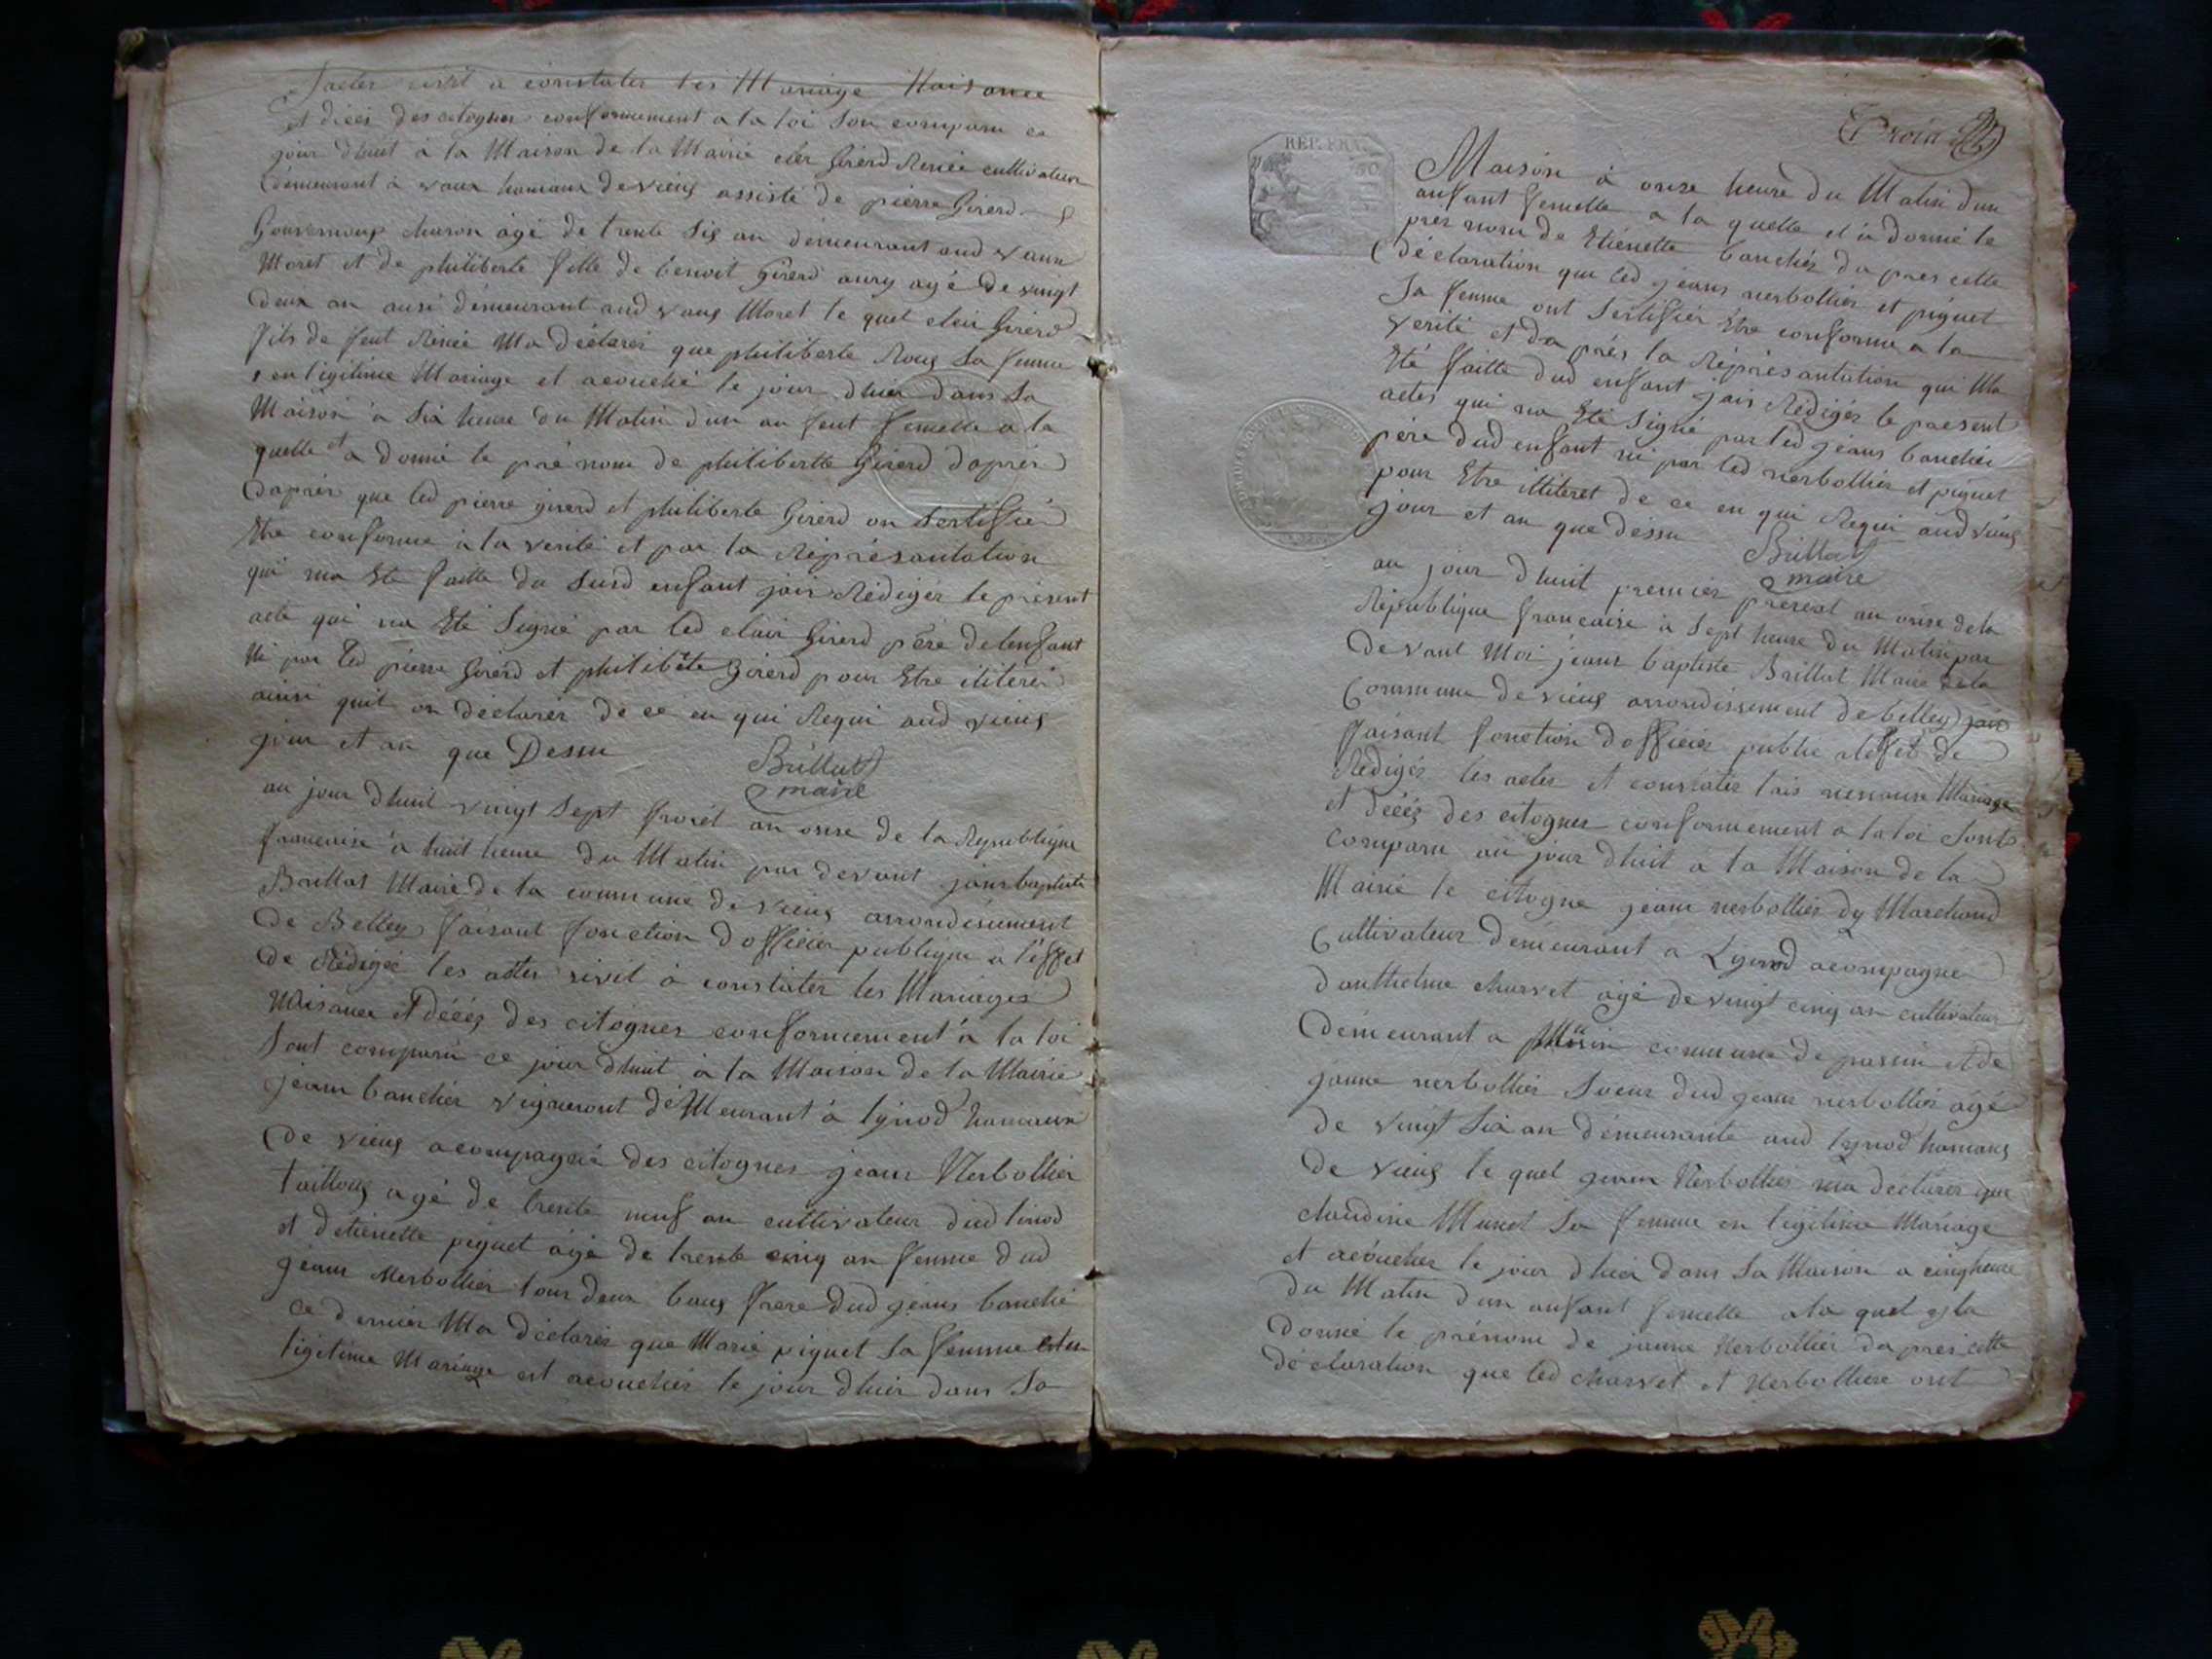 actes sivil a constater les Mariage Naisance
et décés des citognes conformement a la loi son comparu ce
jour dhuit à la Maison de la Mairie cler Girerd Renée cultivateur
demeurant à vaux hameaux de vieug assisté de pierre Girerd
Gouvernoup charon agé de trente sis an demeurant aud vaux
Moret et de philiberte fille de benoit Girerd aury agé de vingt
deux an ausi demeurant aud vaug Moret le quel clair Girerd
fils de feut Renée Ma déclarer que philiberte Roug sa femme
enligitime Mariage et acouché le jour dhier dans sa
Maison à six heure du Matin dun an fent femelle a la
quelle et a donné le pré nom de philibertte Girerd daprés
daprés que led pierre girerd et philiberte Girerd on sertiffié
Etre conforme à la verité et par la Réprésantation
qui ma Eté faitte du susd enfant jais Rédigér le présent
acte qui na Eté Signé par led clair Girerd pére delenfant
Ni par led pierre Girerd et philibete Girerd pour Etre iliteré
ainsi quil on déclarér de ce en qui Requi aud vieug
jour et an que Dessu
Brillat
maire
au jour dhuit vingt Sept frorél an onse de la Republique
francaise à huit heure du Matin par devant jean baptiste
Brillat Maire de la commune de vieug arrondisement
de Belley faisant fonction dofficier publique a l'effet
de Rédigée les actes sivil à constater les Mariages
Naisance et décés des citognes conformement à la loi
Sont comparu ce jour dhuit à la Maison de la Mairie
jeam banchér vigneront deMeurant à lynod hameaux
de vieug acompagnié des citognes jeam Nerbollier
tailloug agé de trente neuf an cultivateur dud linod
et detienette piguet agé de trente cinq an femme dud
jeam Nerbollier tous deux baug frere dud jeans banché
ce dernier Ma déclarér que Marie piguet sa femme esten
ligitime Mariage est acouchér le jour dhier dans sa
Trois
REP. FRA.
Maison à onse heure du Matin dun
anfant femelle a la quelle et a donné le
pres nom de Etienette banchér da pres cette
déclaration que led jeans nerbollier et piguet
sa femme ont Sertiffiér Etre conforme a la
verité et da prés la Réprésantation qui Ma
Eté faitte dud enfant jais Rédigér le présent
actes qui na Eté Signé par led jeans banchér
pére dud enfant ni par led nerbollier et piguet
pour Etre illiteret de ce en qui Requi aud vieug
jour et an que déssu
Brillat
maire
au jour dhuit premier prereal an onse dela
Républigue francaise à Sept heure du Matin par
devant Moi jeans baptiste Brillat Maire de la
Commune de vieug arrondissement de belley
faisant fonction dofficier public aleffet de
Rédigér les actes et constater lais nesance Mariage
et décés des citognes conformement a la loi sont
comparu au jour dhuit a la Maison de la
Mairie le citogne jeam nerbollier dy Marchand
Cultivateur demeurant a Lynod acompagné
danthelme charvet agé de vingt cinq an cultivateur
demeurant a commune de passin et de
janne nerbollier Soeur dud jeam nerbollier agé
de vingt Six an demeurante aud lynod hamaug
de vieug le quel jeam Nerbollier ma declarer que
claudine Munet sa femme en ligitime Mariage
et acoucher le jour dhier dans Sa Maison a cinq heure
du Matin dun anfant femelle ala quel et la
donné le prénom de janne Nerbollier da pres cette
déclaration que led charvet et Nerbolliere ont